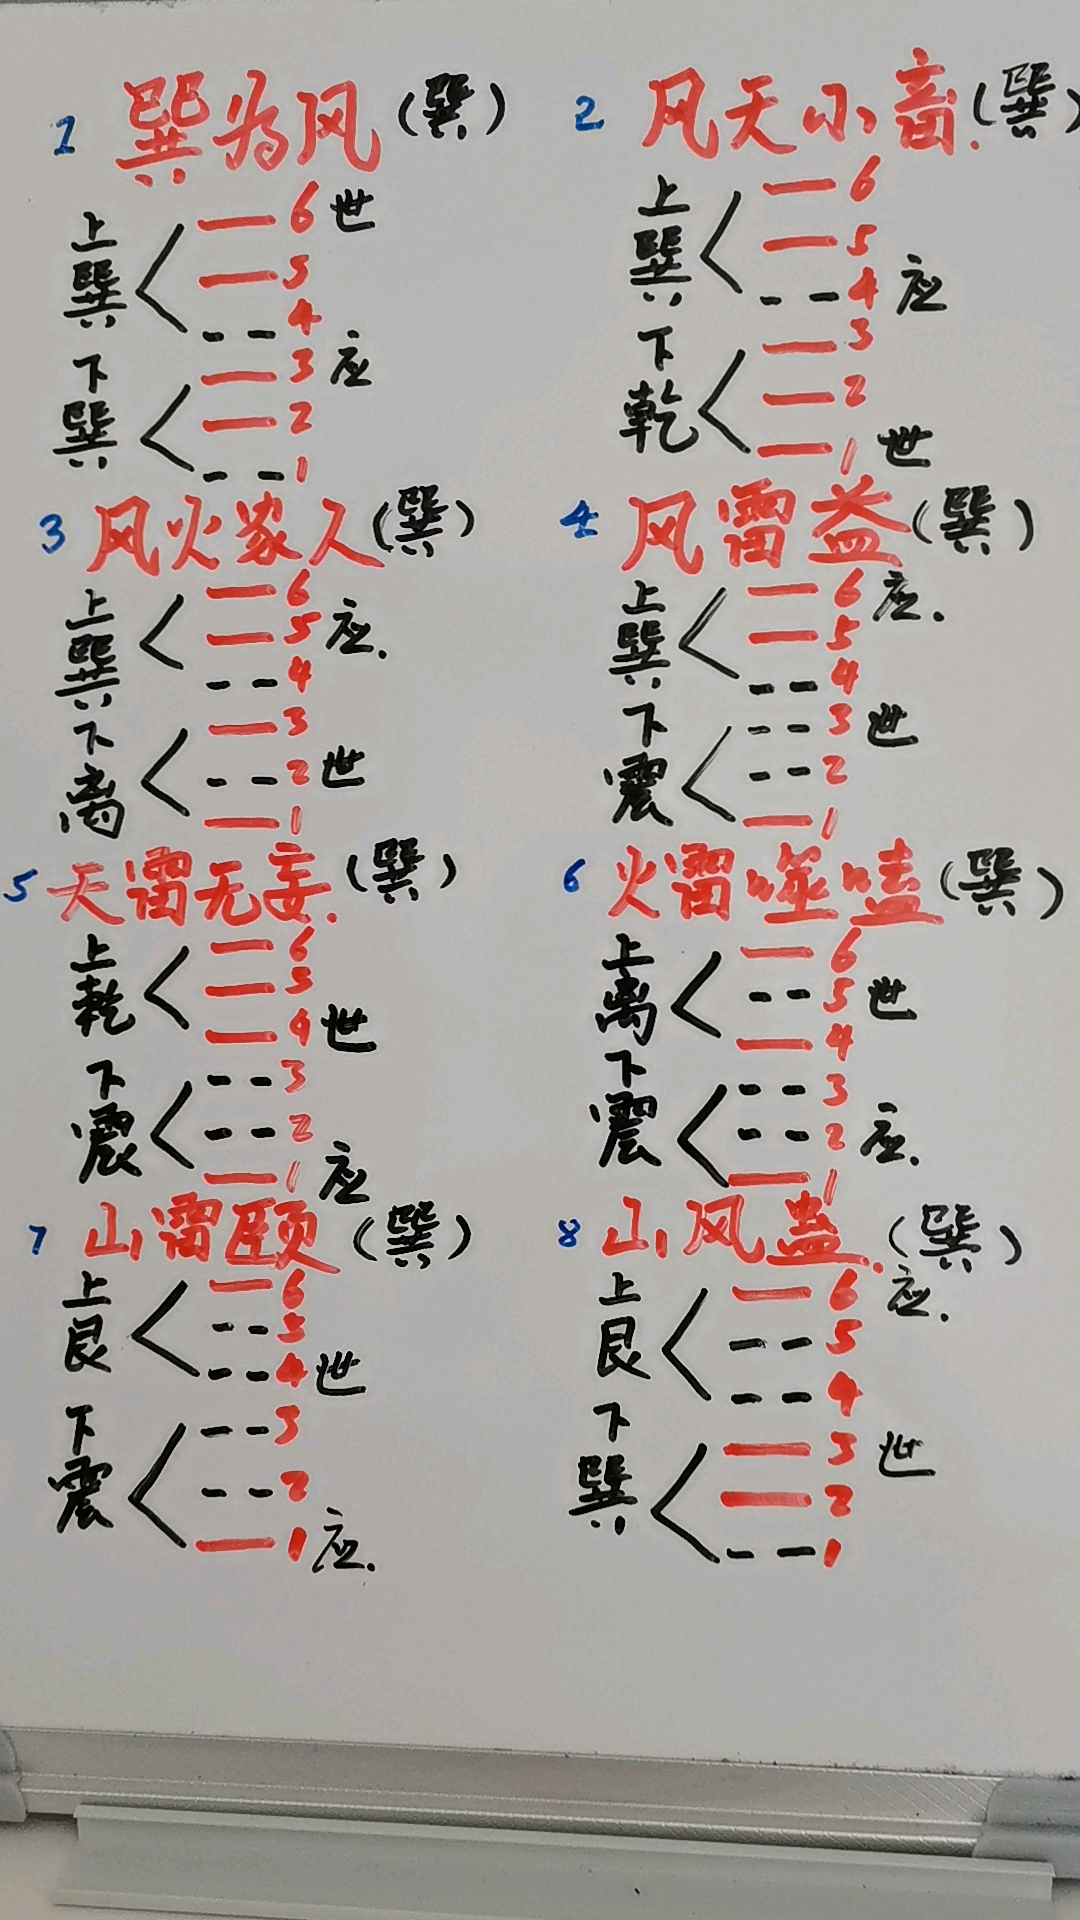 1 巽为风(巽)
上巽
6 世
5
4
下巽
3 应
2
1
2 风天小畜.(巽)
上巽
6
5
4 应
下乾
3
2
1 世
3 风火家人(巽)
上巽
6
5 应.
4
下离
3
2 世
1
4 风雷益(巽)
上巽
6 应.
5
4
下震
3 世
2
1
5 天雷无妄.(巽)
上乾
6
5
4 世
下震
3
2
1 应
6 火雷噬嗑(巽)
上离
6
5 世
4
下震
3
2 应.
1
7 山雷颐(巽)
上艮
6
5
4 世
下震
3
2
1 应.
8 山风蛊.(巽)
上艮
6 应.
5
4
下巽
3 世
2
1